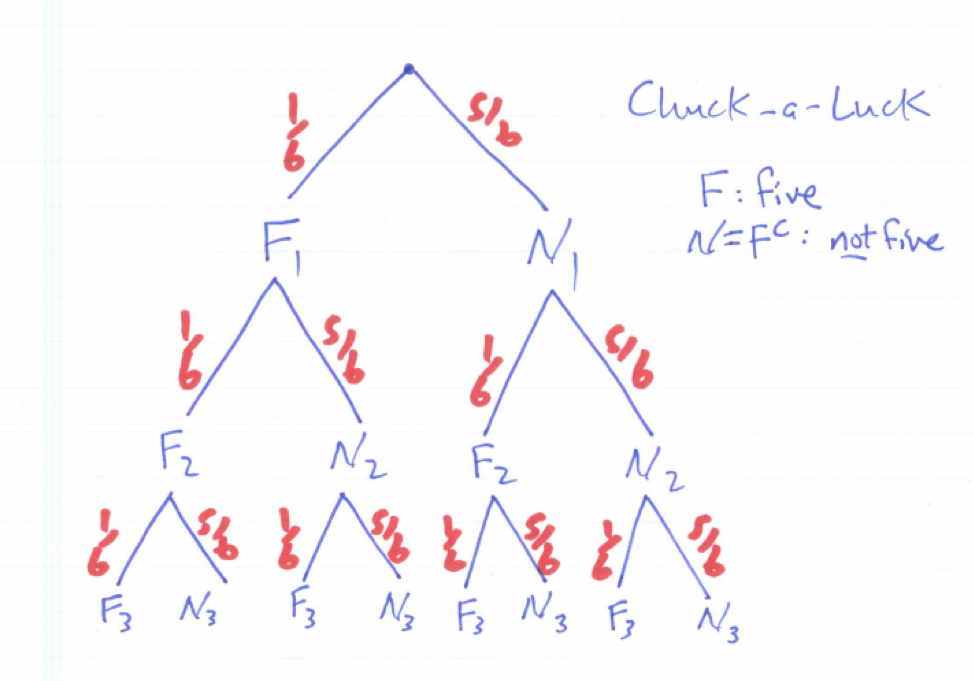 Chuck-a-Luck
1/6 5/6
F: five
N=F^C: not five
F₁ N₁
1/6 5/6 1/6 5/6
F₂ N₂ F₂ N₂
1/6 5/6 1/6 5/6 1/6 5/6 1/6 5/6
F₃ N₃ F₃ N₃ F₃ N₃ F₃ N₃